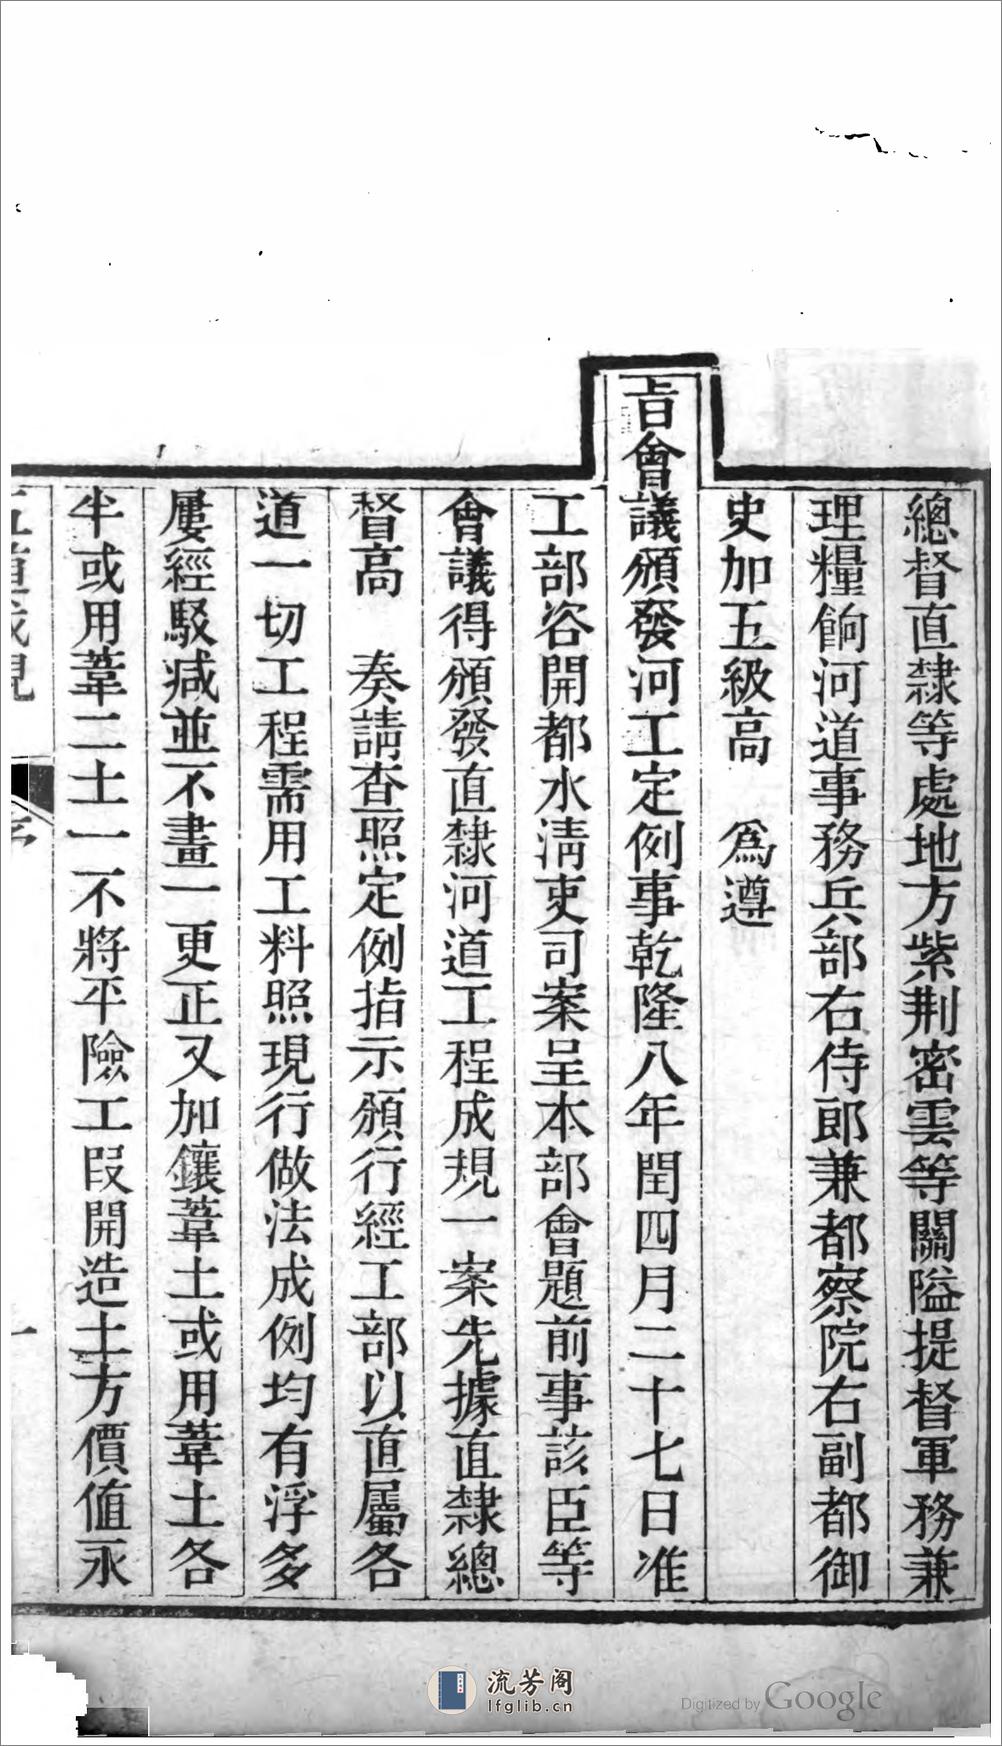 總督直隸等處地方紫荆密雲等關隘提督軍務兼
理糧餉河道事務兵部右侍郎兼都察院右副都御
史加五級高　為遵
旨會議頒發河工定例事乾隆八年閏四月二十七日准
工部咨開都水淸吏司案呈本部會題前事該臣等
會議得頒發直隸河道工程成規一案先據直隸總
督高　奏請查照定例指示頒行經工部以直屬各
道一切工程需用工料照現行做法成例均有浮多
屢經駁减並不畫一更正又加鑲葦土或用葦土各
半或用葦二土一不將平險工叚開造土方價值永
五道成規
序
一
流芳阁
lfglib.cn
Digitized by Google